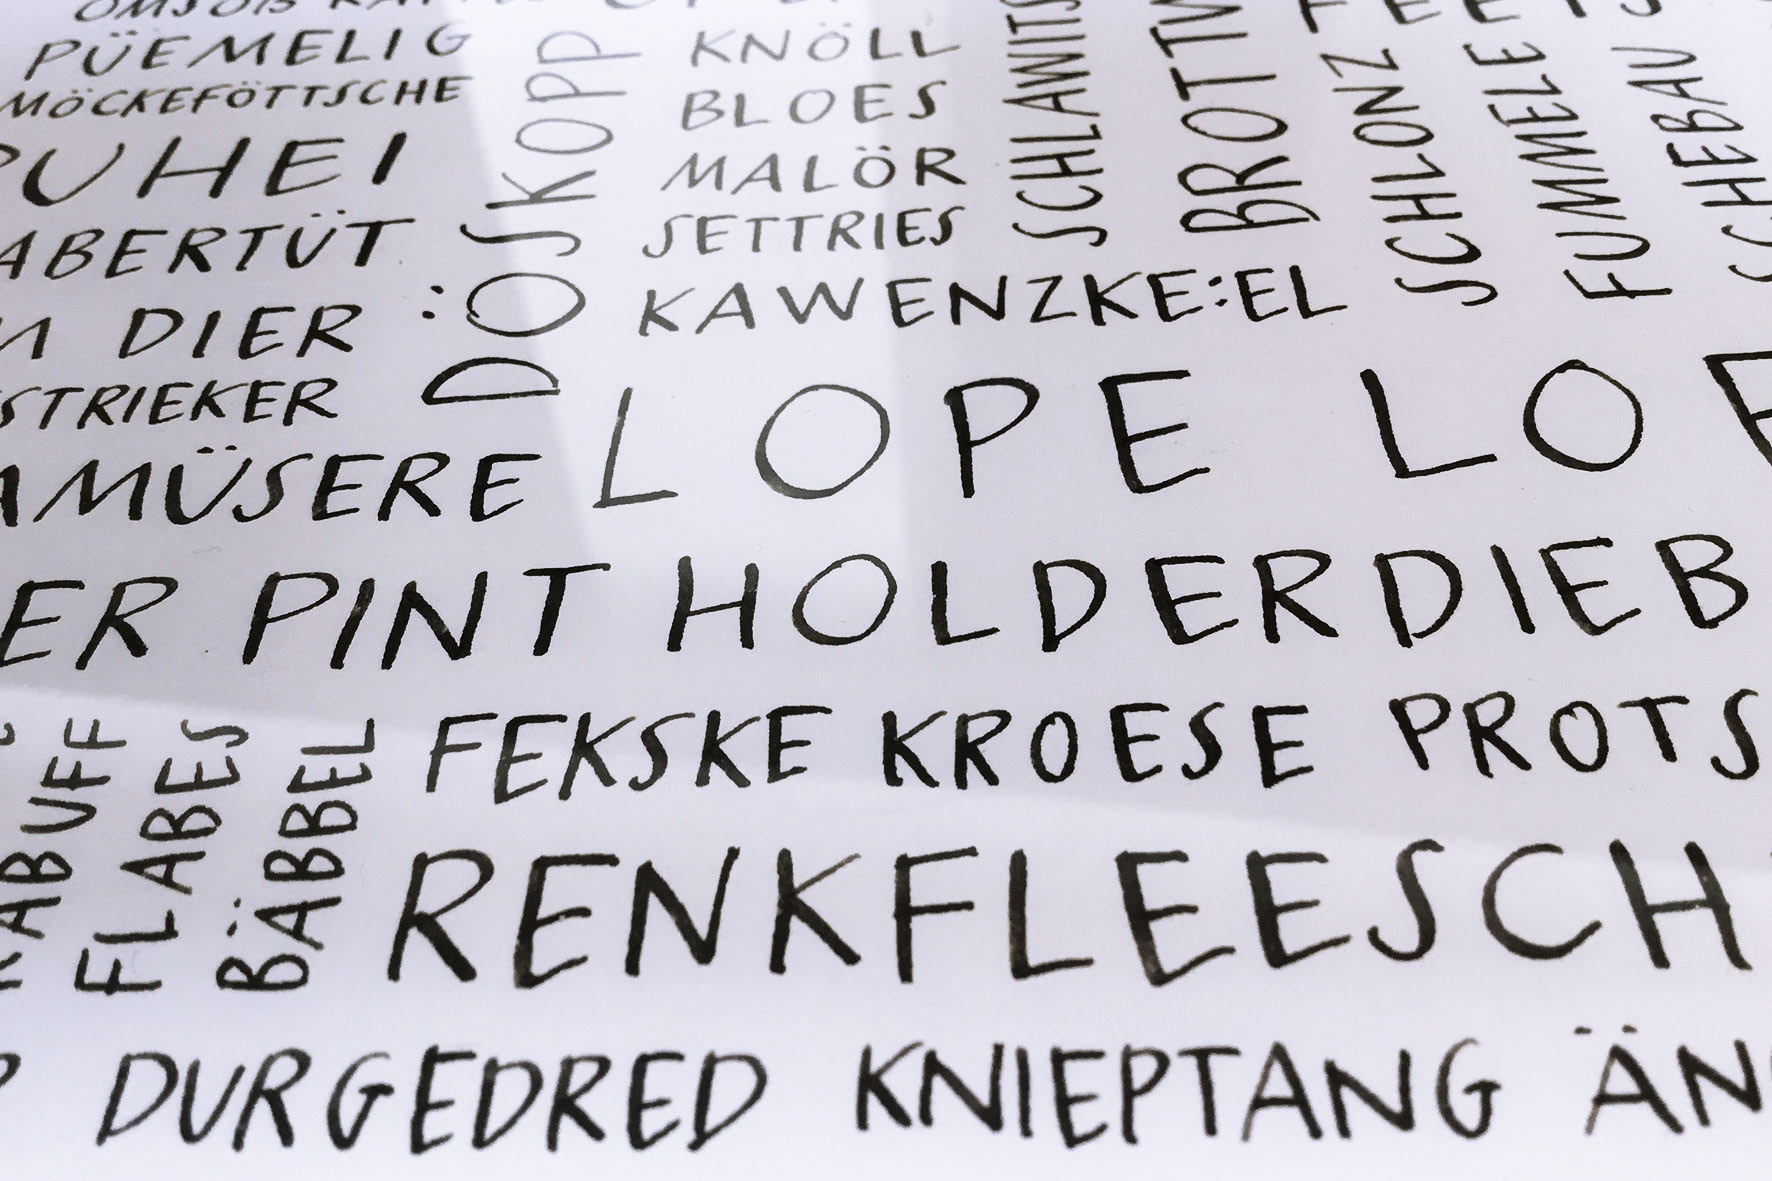 PÜEMELIG
MÖCKEFÖTTSCHE
PUHEI
ABERTÜT
DIER
STRIEKER
AMÜSERE
DÖSKOPP
KNÖLL
BLOES
MALÖR
SETTRIES
KAWENZKE:EL
SCHLAWITS
BROTT
SCHLONZ
FUMMELE
SCHEBAU
LOPE LO
ER PINT HOLDERDIEB
FLABES
BÄBBEL
FEKSKE KROESE PROTS
RENKFLEESCH
DURGEDRED KNIEPTANG ÄN